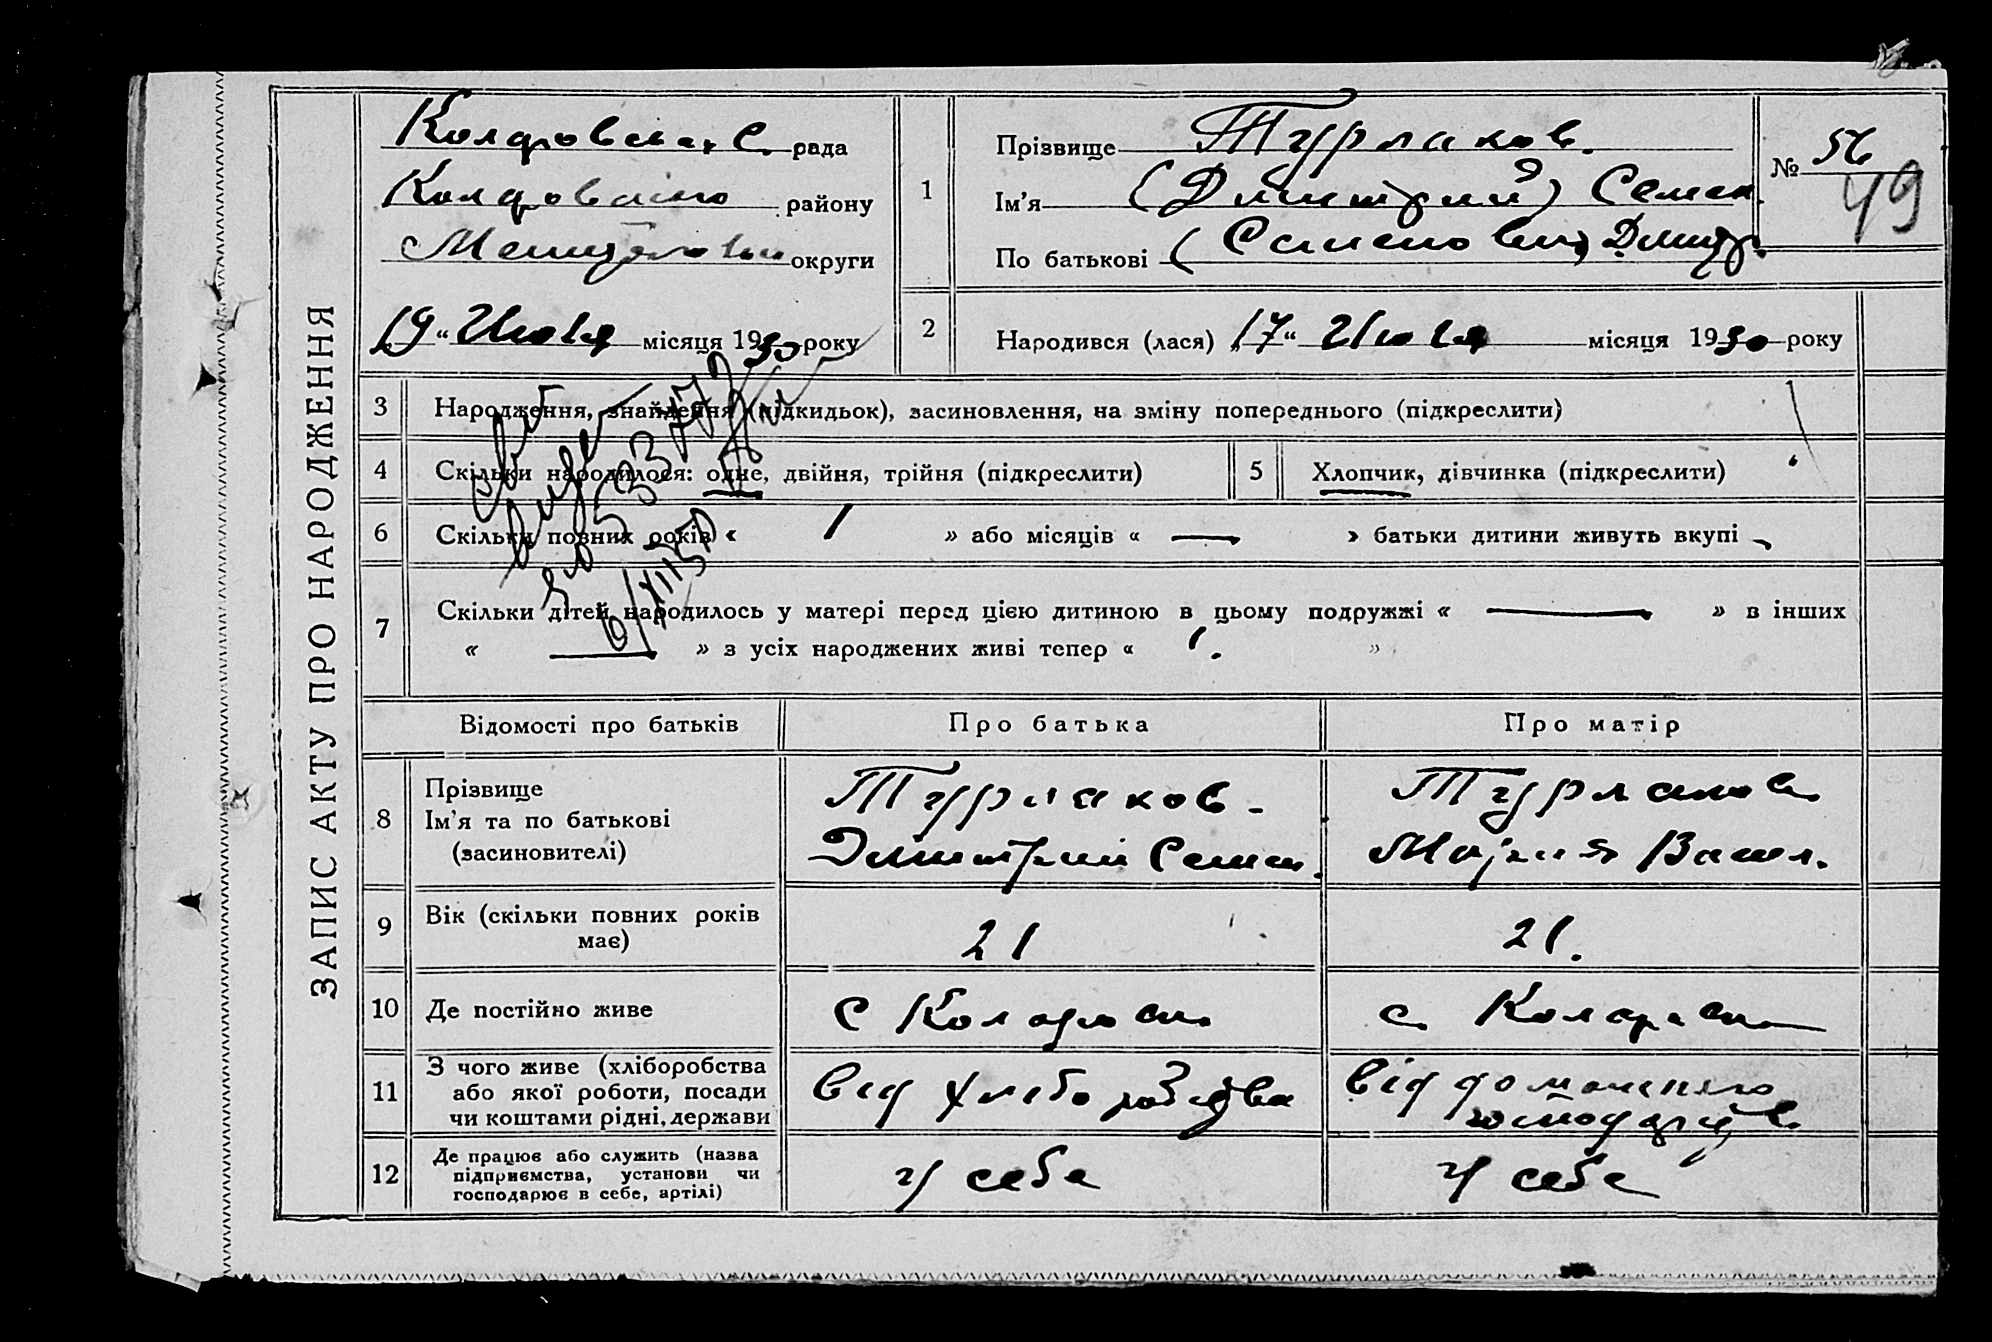 ЗАПИС АКТУ ПРО НАРОДЖЕННЯ
рада
району
округи
19 " Июля місяця 1930 року
№ 56
49
1 Прізвище Турлаков.
Ім'я (Дмитрий) Семен.
По батькові (Семенович) Дмитр.
2 Народився (лася) 17 " Июля місяця 1930 року
3 Народження, знайдення (підкидьок), засиновлення, на зміну попереднього (підкреслити)
4 Скільки народилося: одне, двійня, трійня (підкреслити) 5 Хлопчик, дівчинка (підкреслити)
6 Скільки повних років « 1 » або місяців « — » батьки дитини живуть вкупі
7 Скільки дітей народилось у матері перед цією дитиною в цьому подружжі « — » в інших
« — » з усіх народжених живі тепер « 1. »
Свід
видано
Відомості про батьків Про батька Про матір
8 Прізвище
Ім'я та по батькові
(засиновителі)
Турлаков -
Дмитрий Семен.
Турлакова
Мария Васил.
9 Вік (скільки повних років має) 21 21.
10 Де постійно живе с с.
11 З чого живе (хліборобства
або якої роботи, посади
чи коштами рідні, держави
від хліборобства
від домашнього
господарства
12 Де працює або служить (назва
підприємства, установи чи
господарює в себе, артілі)
у себе
у себе